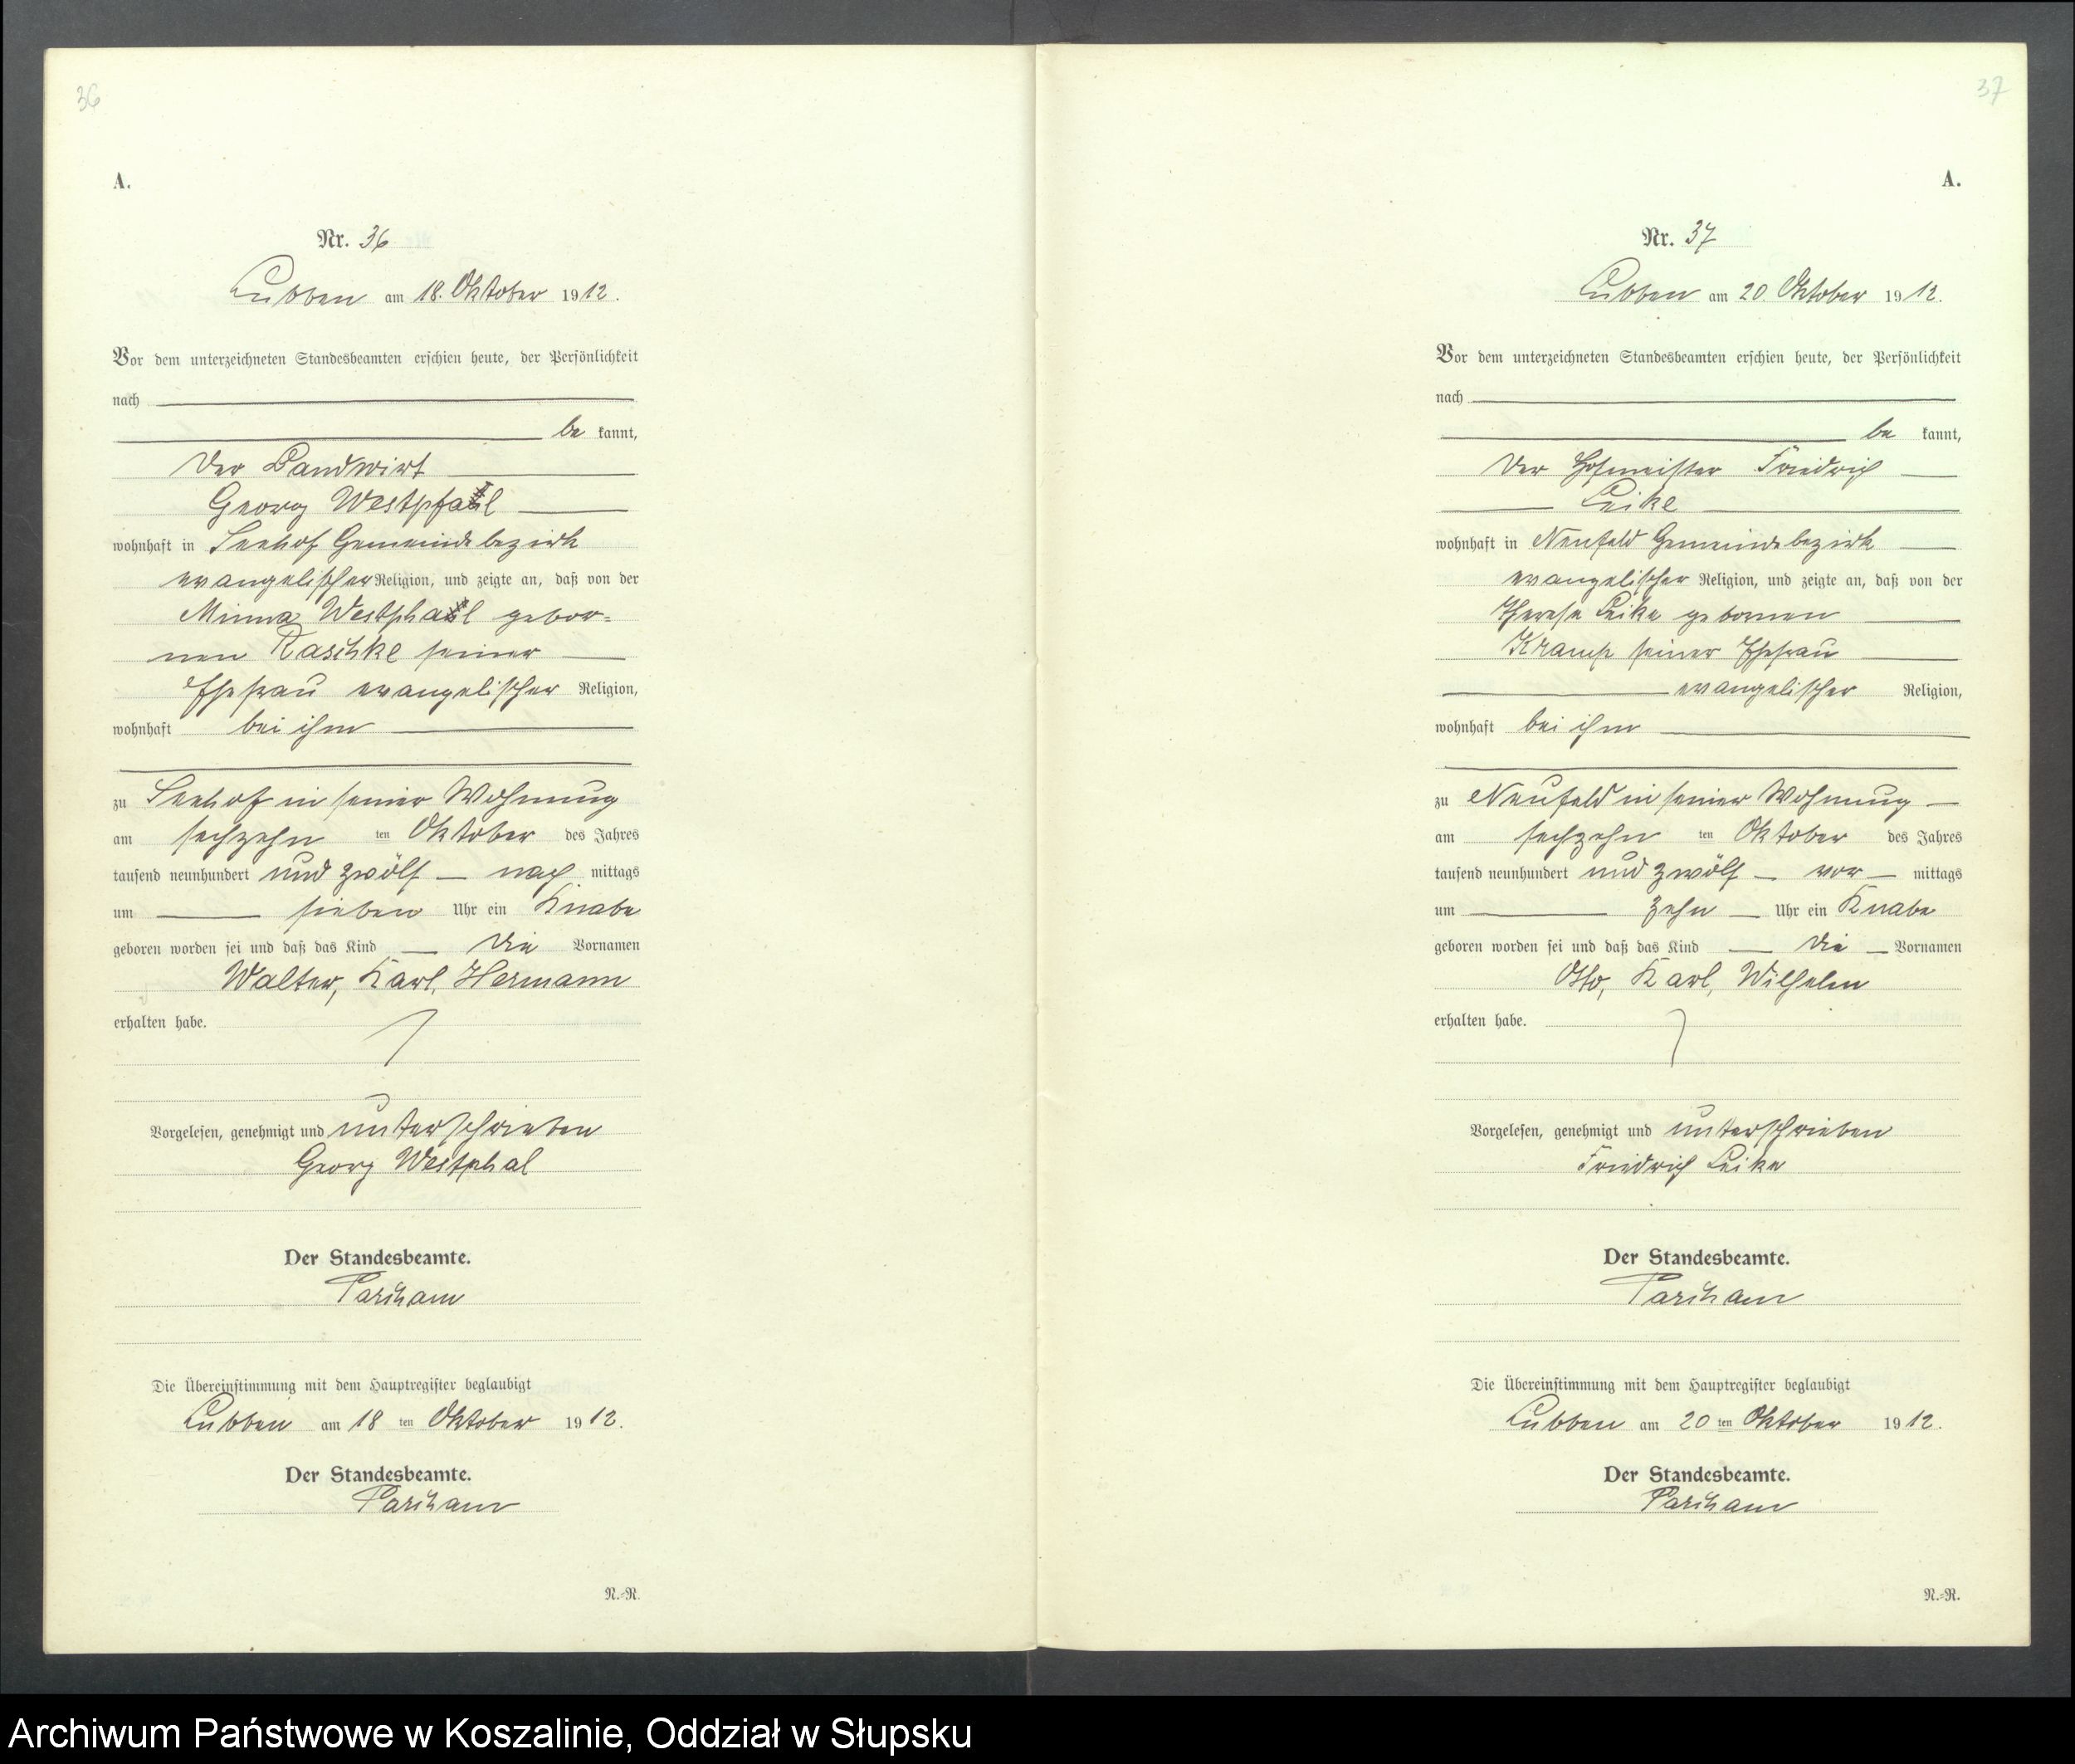 36
A.
Nr. 36
Lubben am 18. Oktober 1912.
Vor dem unterzeichneten Standesbeamten erschien heute, der Persönlichkeit
nach
be kannt,
der Landwirt
Georg Westpfal
wohnhaft in Seehof Gemeindebezirk
evangelischer Religion, und zeigte an, daß von der
Minna Westphal gebor-
nen Raschke seiner
Ehefrau evangelischer Religion,
wohnhaft bei ihm
zu Seehof in seiner Wohnung
am sechzehn ten Oktober des Jahres
tausend neunhundert und zwölf nach mittags
um sieben Uhr ein Knabe
geboren worden sei und daß das Kind die Vornamen
Walter, Karl, Hermann
erhalten habe.
Vorgelesen, genehmigt und unterschrieben
Georg Westphal
Der Standesbeamte.
Die Übereinstimmung mit dem Hauptregister beglaubigt
Lubben am 18 ten Oktober 1912.
Der Standesbeamte.
N.-R.
37
A.
Nr. 37
Lubben am 20. Oktober 1912.
Vor dem unterzeichneten Standesbeamten erschien heute, der Persönlichkeit
nach
be kannt,
der Hofmeister Friedrich
Leike
wohnhaft in Neufeld Gemeindebezirk
evangelischer Religion, und zeigte an, daß von der
Therese Leike gebornen
Kramp seiner Ehefrau
evangelischer Religion,
wohnhaft bei ihm
zu Neufeld in seiner Wohnung
am sechzehn ten Oktober des Jahres
tausend neunhundert und zwölf vor mittags
um zehn Uhr ein Knabe
geboren worden sei und daß das Kind die Vornamen
Otto, Karl, Wilhelm
erhalten habe.
Vorgelesen, genehmigt und unterschrieben
Friedrich Leike
Der Standesbeamte.
Die Übereinstimmung mit dem Hauptregister beglaubigt
Lubben am 20 ten Oktober 1912.
Der Standesbeamte.
N.-R.
Archiwum Państwowe w Koszalinie, Oddział w Słupsku